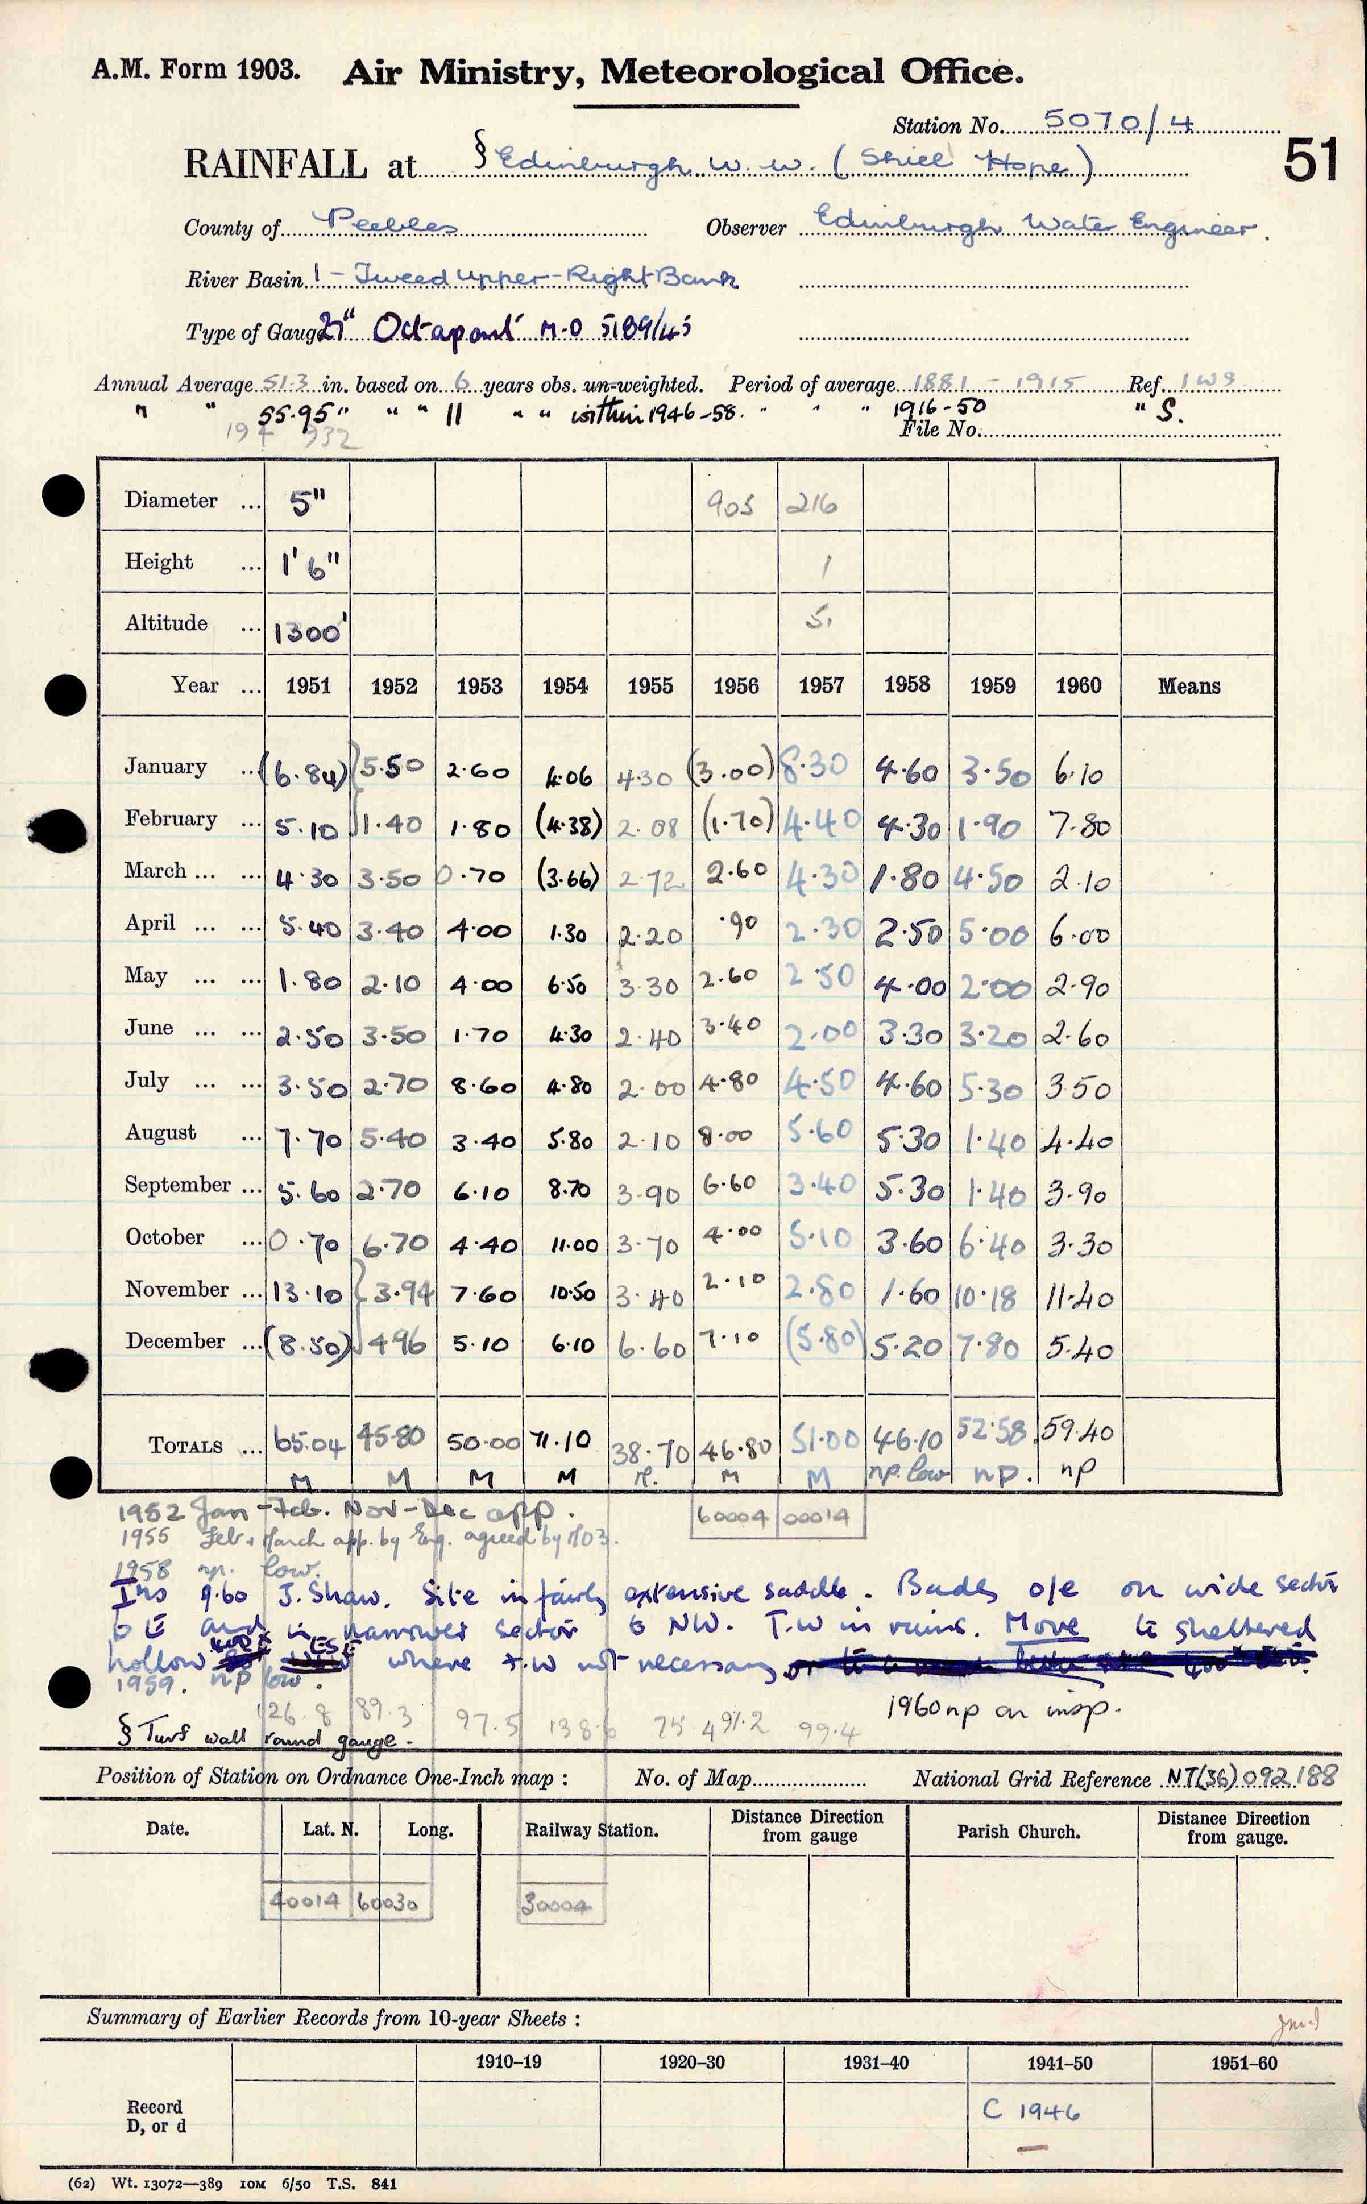 A.M. Form 1903. Air Ministry, Meteorological Office.
Station No. 5070/4
51
RAINFALL at § Edinburgh W.W. (Shiel Hope)
County of Peebles Observer Edinburgh Water Engineer.
River Basin 1 - Tweed Upper - Right Bank
Type of Gauge 21" Octapont M.O 5189/45
Annual Average 51.3 in. based on 6 years obs. un-weighted. Period of average 1881 - 1915 Ref. 1W3
" " 55.95" " " 11 " " within 1946-58. " " " 1916-50 " S.
File No.
Diameter ... 5" 905 216
Height ... 1' 6" 1
Altitude ... 1300' 5.
Year ... 1951 1952 1953 1954 1955 1956 1957 1958 1959 1960 Means
January ... (6.84) 5.50 2.60 4.06 4.30 (3.00) 8.30 4.60 3.50 6.10
February ... 5.10 1.40 1.80 (4.38) 2.08 (1.70) 4.40 4.30 1.90 7.80
March ... ... 4.30 3.50 0.70 (3.66) 2.72 2.60 4.30 1.80 4.50 2.10
April ... ... 5.40 3.40 4.00 1.30 2.20 .90 2.30 2.50 5.00 6.00
May ... ... 1.80 2.10 4.00 6.50 3.30 2.60 2.50 4.00 2.00 2.90
June ... ... 2.50 3.50 1.70 4.30 2.40 3.40 2.00 3.30 3.20 2.60
July ... ... 3.50 2.70 8.60 4.80 2.00 4.80 4.50 4.60 5.30 3.50
August ... 7.70 5.40 3.40 5.80 2.10 8.00 5.60 5.30 1.40 4.40
September ... 5.60 2.70 6.10 8.70 3.90 6.60 3.40 5.30 1.40 3.90
October ... 0.70 6.70 4.40 11.00 3.70 4.00 5.10 3.60 6.40 3.30
November ... 13.10 3.94 7.60 10.50 3.40 2.10 2.80 1.60 10.18 11.40
December ... (8.50) 4.96 5.10 6.10 6.60 7.10 (5.80) 5.20 7.80 5.40
TOTALS ... 65.04 45.80 50.00 71.10 38.70 46.80 51.00 46.10 52.58 59.40
M M M M M. M M np. low np. np
1952 Jan - Feb. Nov - Dec app.
60004 00014
1955 Feb & March app. by Eng. agreed by MO3.
1958 np. low.
Ins 9.60 J. Shaw. Site in fairly extensive saddle. Badly o/e on wide sector
to E and in narrower sector to NW. T.W in ruins. Move to sheltered
hollow where T.W not necessary
1959. np low.
1960 np on insp.
126.8 89.3 97.5 138.6 75.4 91.2 99.4
§ Turf wall round gauge.
Position of Station on Ordnance One-Inch map : No. of Map National Grid Reference NT(36) 092 188
Date. Lat. N. Long. Railway Station. Distance Direction from gauge Parish Church. Distance Direction from gauge.
40014 60030 30004
Summary of Earlier Records from 10-year Sheets :
1910–19 1920–30 1931–40 1941–50 1951–60
Record
D, or d
C 1946
(62) Wt. 13072—389 10M 6/50 T.S. 841